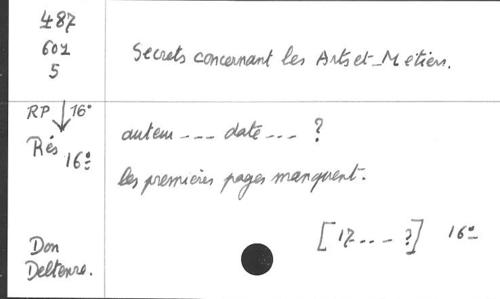 487
601
5
Secrets concernant les Arts et Métiers.
RP 16°
Rés 16°
auteur --- date --- ?
les premières pages manquent.
[17... ?] 16°
Don
Deltenre.